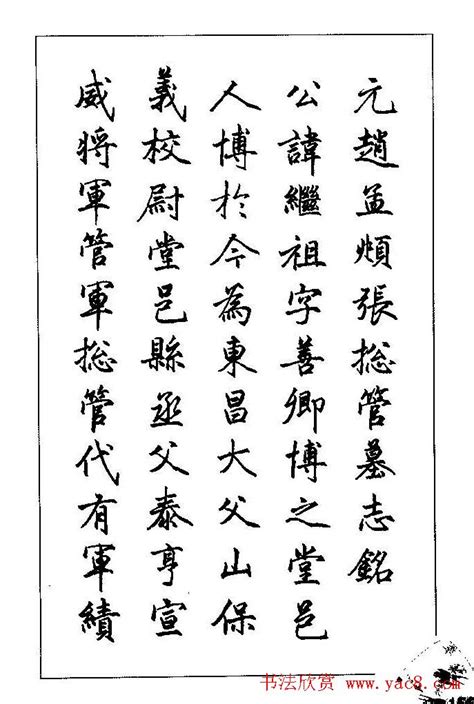 元趙孟頫張捴管墓志銘
公諱繼祖字善卿博之堂邑
人博於今為東昌大父山保
義校尉堂邑縣丞父泰亨宣
威将軍管軍捴管代有軍績
书法欣赏 www.yac8.com